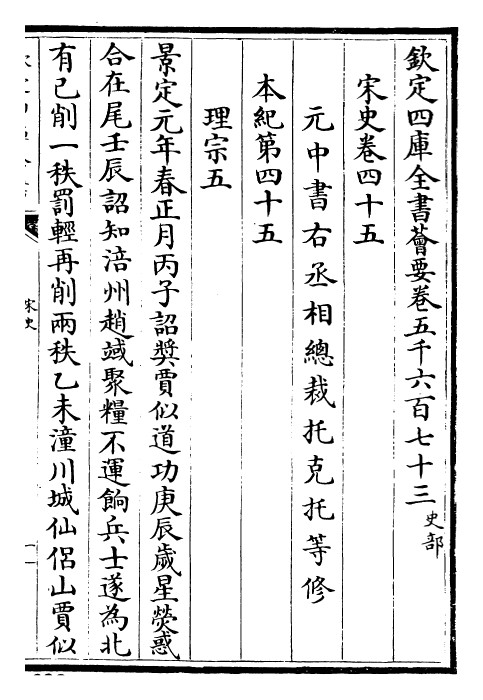 欽定四庫全書薈要卷五千六百七十三 史部
宋史卷四十五
元中書右丞相總裁托克托等修
本紀第四十五
理宗五
景定元年春正月丙子詔獎賈似道功庚辰歲星熒惑
合在尾壬辰詔知涪州趙𡺸聚糧不運餉兵士遂為北
有已削一秩罰輕再削兩秩乙未潼川城仙侶山賈似
宋史